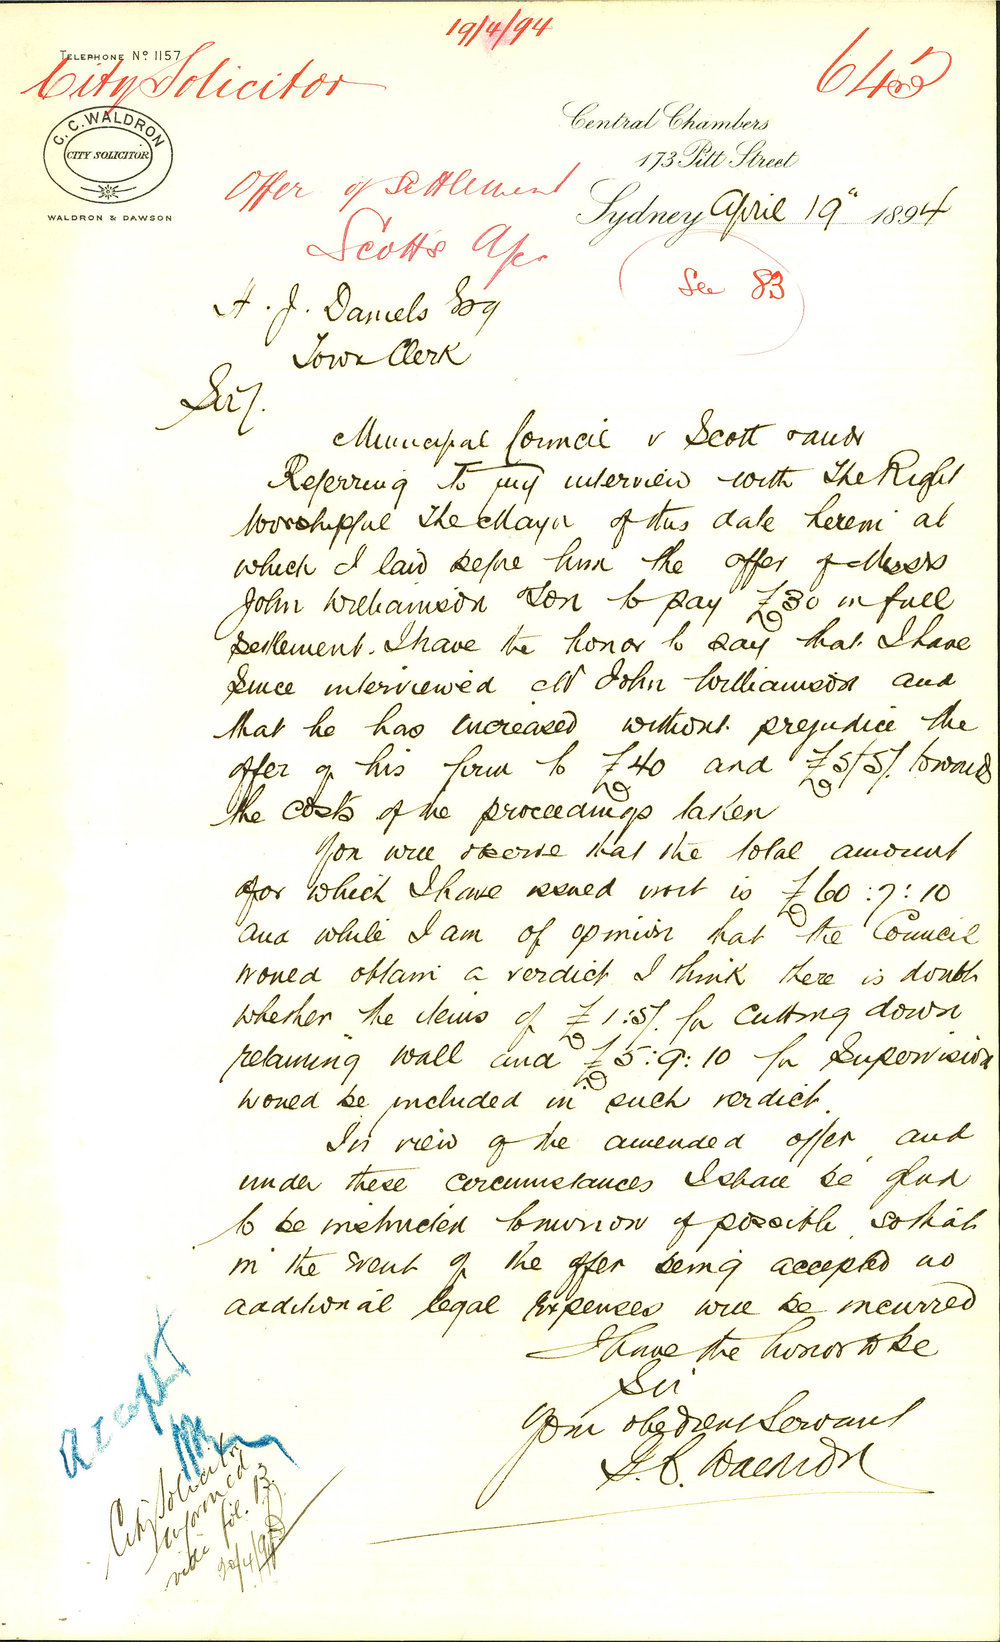 19/4/94
TELEPHONE Nº 1157
City Solicitor
645
G. C. WALDRON
CITY SOLICITOR
WALDRON & DAWSON
Central Chambers
173 Pitt Street
Offer of Settlement
Sydney April 19" 1894
Scott's
See 83
H. J. Daniels Esq
Town Clerk
Sir/.
Municipal Council v Scott & anor
Referring to my interview with The Right
Worshipful The Mayor of this date herein at
which I laid before him the offer of Messrs
John Williamson & Son to pay £30 in full
settlement. I have the honor to say that I have
since interviewed Mr John Williamson and
that he has increased without prejudice the
offer of his firm to £40 and £5/5/. towards
the costs of the proceedings taken
You will observe that the total amount
for which I have issued writ is £60:7:10
and while I am of opinion that the Council
would obtain a verdict I think there is doubt
whether the items of £1:5/. for cutting down
retaining wall and £5:9:10 for Supervision
would be included in such verdict.
In view of the amended offer, and
under these circumstances I shall be glad
to be instructed tomorrow if possible, so that
in the event of the offer being accepted no
additional legal expenses will be incurred
I have the honor to be
Sir
Your obedient Servant
G. C. Waldron
Accept
City Solicitor
Informed
vide fol. 13
20/4/94